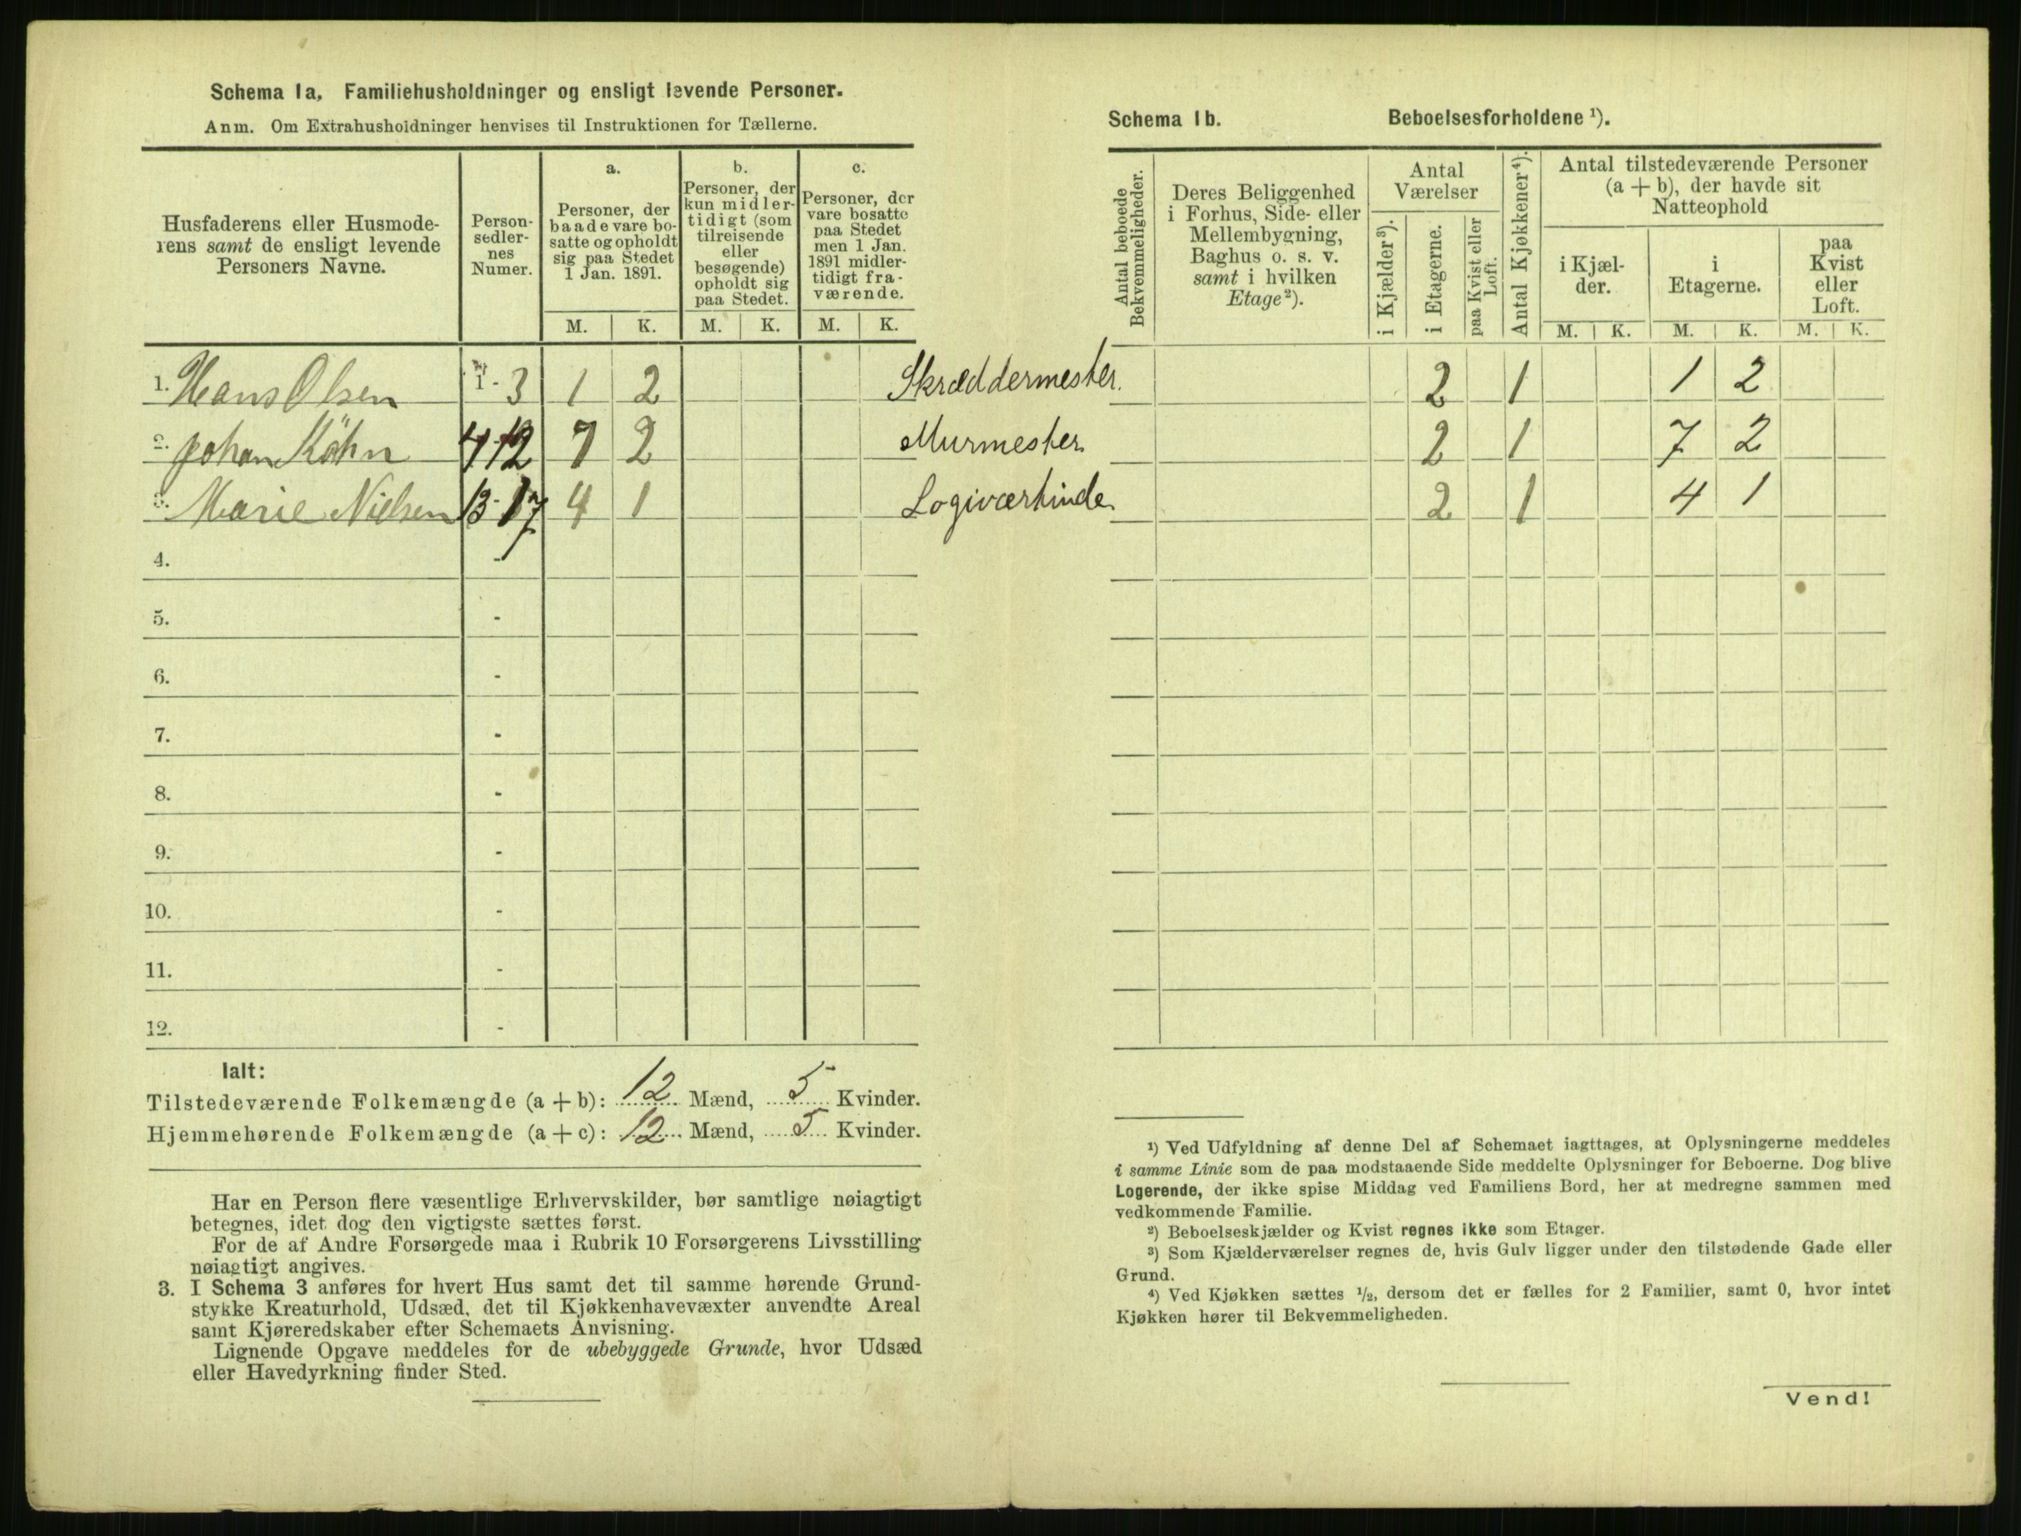 Schema 1a. Familiehusholdninger og ensligt levende Personer.
Anm. Om Extrahusholdninger henvises til Instruktionen for Tællerne.
Husfaderens eller Husmode-
rens samt de ensligt levende
Personers Navne.
Person-
sedler-
nes
Numer.
a.
Personer, der
baade vare bo-
satte og opholdt
sig paa Stedet
1 Jan. 1891.
b.
Personer, der
kun midler-
tidigt (som
tilreisende
eller
besøgende)
opholdt sig
paa Stedet.
c.
Personer, der
vare bosatte
paa Stedet
men 1 Jan.
1891 midler-
tidigt fra-
værende.
M. K. M. K. M. K.
1. Hans Olsen 1 - 3 1 2 Skræddermester.
2. Johan Köhn 4-12 7 2 Murmester
3. Marie Nielsen 13-17 4 1 Logiværtinde
4. -
5. -
6. -
7. -
8. -
9. -
10. -
11. -
12. -
Ialt:
Tilstedeværende Folkemængde (a + b): 12 Mænd, 5 Kvinder.
Hjemmehørende Folkemængde (a + c): 12 Mænd, 5 Kvinder.
Har en Person flere væsentlige Erhvervskilder, bør samtlige nøiagtigt
betegnes, idet dog den vigtigste sættes først.
For de af Andre Forsørgede maa i Rubrik 10 Forsørgerens Livsstilling
nøiagtigt angives.
3. I Schema 3 anføres for hvert Hus samt det til samme hørende Grund-
stykke Kreaturhold, Udsæd, det til Kjøkkenhavevæxter anvendte Areal
samt Kjøreredskaber efter Schemaets Anvisning.
Lignende Opgave meddeles for de ubebyggede Grunde, hvor Udsæd
eller Havedyrkning finder Sted.
Schema 1b. Beboelsesforholdene ¹).
Antal beboede
Bekvemmeligheder.
Deres Beliggenhed
i Forhus, Side- eller
Mellembygning,
Baghus o. s. v.
samt i hvilken
Etage ²).
Antal
Værelser
i Kjælder ³).
i Etagerne.
paa Kvist eller
Loft.
Antal Kjøkkener ⁴).
Antal tilstedeværende Personer
(a + b), der havde sit
Natteophold
i Kjæl-
der.
i
Etagerne.
paa
Kvist
eller
Loft.
M. K. M. K. M. K.
2 1 1 2
2 1 7 2
2 1 4 1
¹) Ved Udfyldning af denne Del af Schemaet iagttages, at Oplysningerne meddeles
i samme Linie som de paa modstaaende Side meddelte Oplysninger for Beboerne. Dog blive
Logerende, der ikke spise Middag ved Familiens Bord, her at medregne sammen med
vedkommende Familie.
²) Beboelseskjælder og Kvist regnes ikke som Etager.
³) Som Kjælderværelser regnes de, hvis Gulv ligger under den tilstødende Gade eller
Grund.
⁴) Ved Kjøkken sættes ½, dersom det er fælles for 2 Familier, samt 0, hvor intet
Kjøkken hører til Bekvemmeligheden.
Vend!